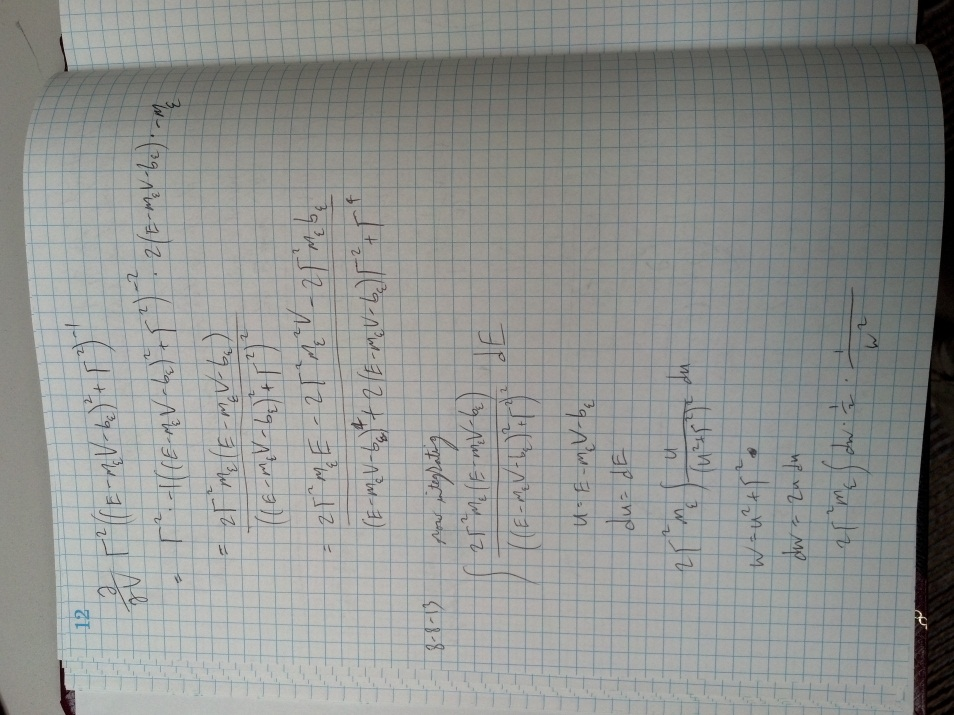 12
∂/∂V Γ²((E-m_εV-b_ε)²+Γ²)⁻¹
= Γ²·-1((E-m_εV-b_ε)²+Γ²)⁻²·2(E-m_εV-b_ε)·-m_ε
= 2Γ²m_ε(E-m_εV-b_ε)
((E-m_εV-b_ε)²+Γ²)²
= 2Γ²m_εE - 2Γ²m_ε²V - 2Γ²m_εb_ε
(E-m_εV-b_ε)⁴+2(E-m_εV-b_ε)Γ²+Γ⁴
8-8-13 now integrating
∫ 2Γ²m_ε(E-m_εV-b_ε) dE
((E-m_εV-b_ε)²+Γ²)²
u=E-m_εV-b_ε
du=dE
2Γ²m_ε ∫ u/(u²+Γ²)² du
w=u²+Γ²
dw=2u du
2Γ²m_ε ∫ dw·½·1/w²